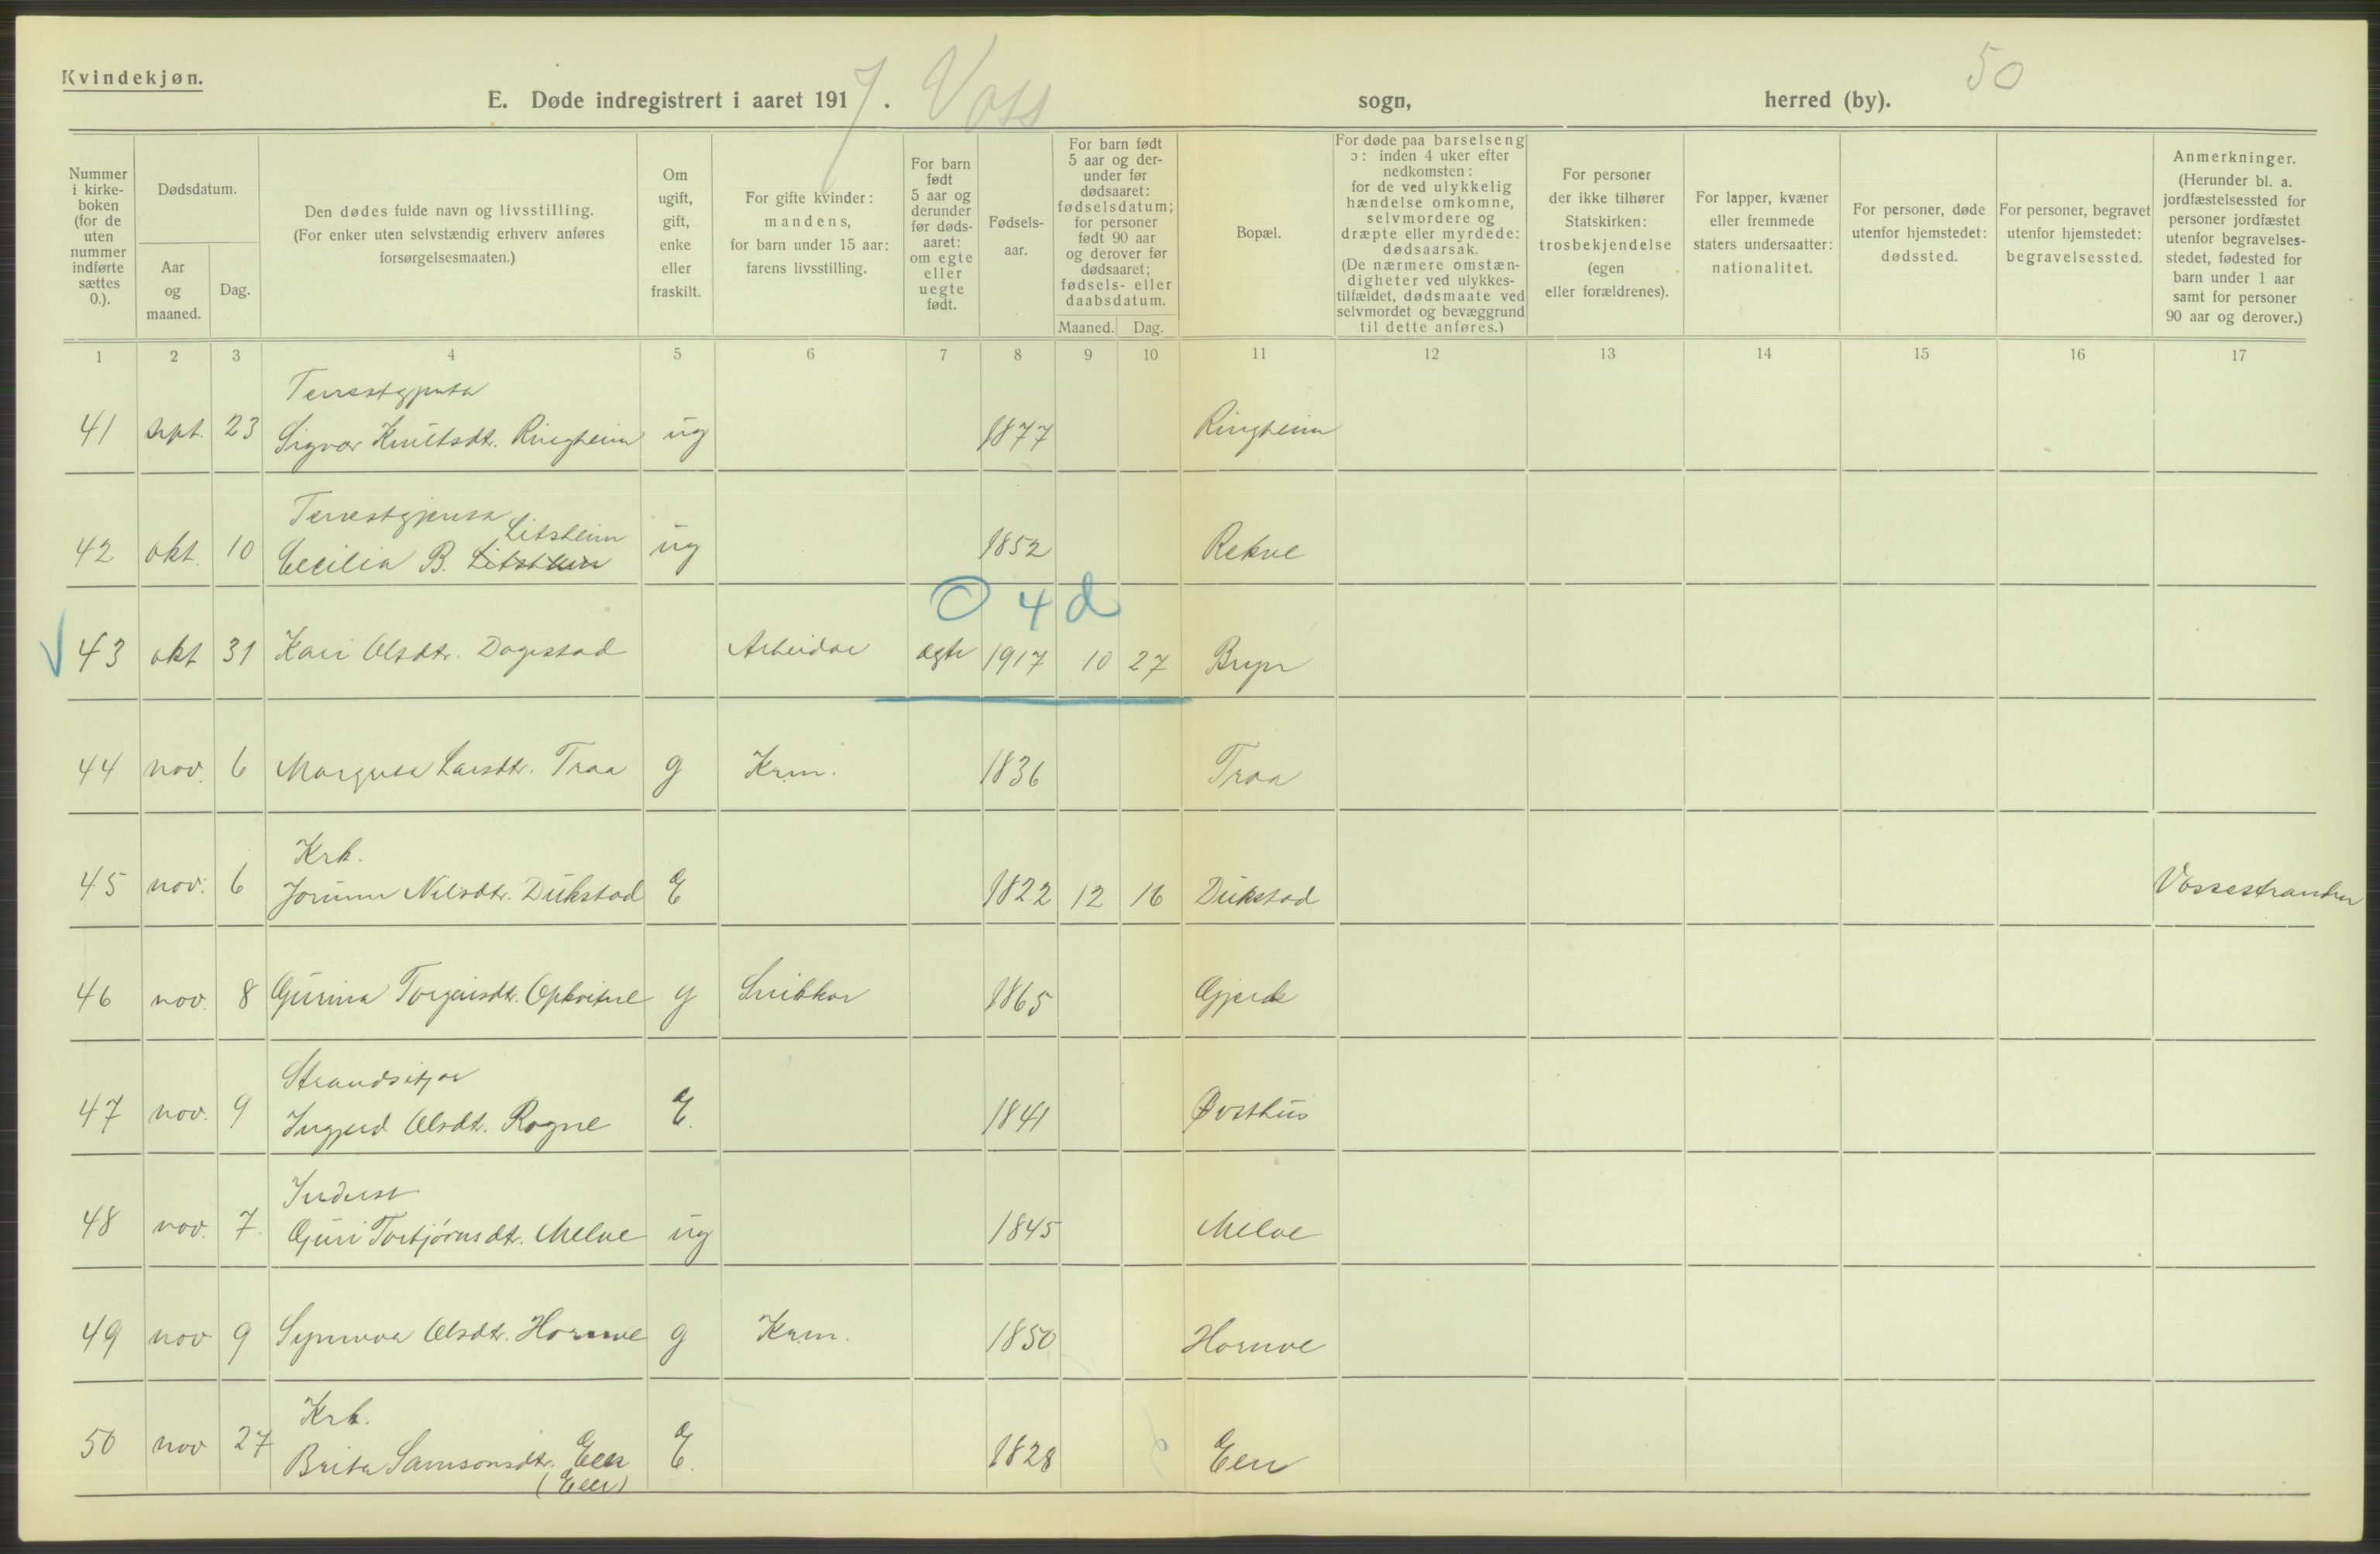 Kvindekjøn.
50
E. Døde indregistrert i aaret 1917. Voss sogn, herred (by).
Nummer i kirke-boken (for de uten nummer indførte sættes 0.).
Dødsdatum.
Aar og maaned.
Dag.
Den dødes fulde navn og livsstilling. (For enker uten selvstændig erhverv anføres forsørgelsesmaaten.)
Om ugift, gift, enke eller fraskilt.
For gifte kvinder: mandens, for barn under 15 aar: farens livsstilling.
For barn født 5 aar og derunder før døds-aaret: om egte eller uegte født.
Fødsels-aar.
For barn født 5 aar og der-under før dødsaaret: fødselsdatum; for personer født 90 aar og derover før dødsaaret; fødsels- eller daabsdatum.
Maaned. Dag.
Bopæl.
For døde paa barselseng ɔ: inden 4 uker efter nedkomsten: for de ved ulykkelig hændelse omkomne, selvmordere og dræpte eller myrdede: dødsaarsak. (De nærmere omstæn-digheter ved ulykkes-tilfældet, dødsmaate ved selvmordet og bevæggrund til dette anføres.)
For personer der ikke tilhører Statskirken: trosbekjendelse (egen eller forældrenes).
For lapper, kvæner eller fremmede staters undersaatter: nationalitet.
For personer, døde utenfor hjemstedet: dødssted.
For personer, begravet utenfor hjemstedet: begravelsessted.
Anmerkninger. (Herunder bl. a. jordfæstelsessted for personer jordfæstet utenfor begravelses-stedet, fødested for barn under 1 aar samt for personer 90 aar og derover.)
1 2 3 4 5 6 7 8 9 10 11 12 13 14 15 16 17
41 sept. 23 Sigvor Knutsdtr. Ringheim ug 1877 Ringheim
Litsheim
42 okt. 10 Cecilia B. Litsheim ug 1852 Rekve
0 4 d
43 okt 31 Kari Olsdtr. Dagestad Arbeidar ægte 1917 10 27
44 nov. 6 Margreta Larsdtr. Traa g Krm. 1836 Traa
Krk.
45 nov. 6 Jorunn Nilsdtr. Dukstad E 1822 12 16 Dukstad Vossestranden
46 nov. 8 Gurina Torgeirsdtr. g Snikkar 1865 Gjerde
Strandsitjar
47 nov. 9 Ingjerd Olsdtr. Rogne E. 1841 Øvsthus
Inderst
48 nov. 7. Guri Torbjørnsdtr. Melve ug 1845 Melve
49 nov 9 Synnva Olsdtr. Hornve g Krm. 1850 Hornve
Krk.
50 nov 27 Brita Samsonsdtr. Een E. 1828 Een
(Een)